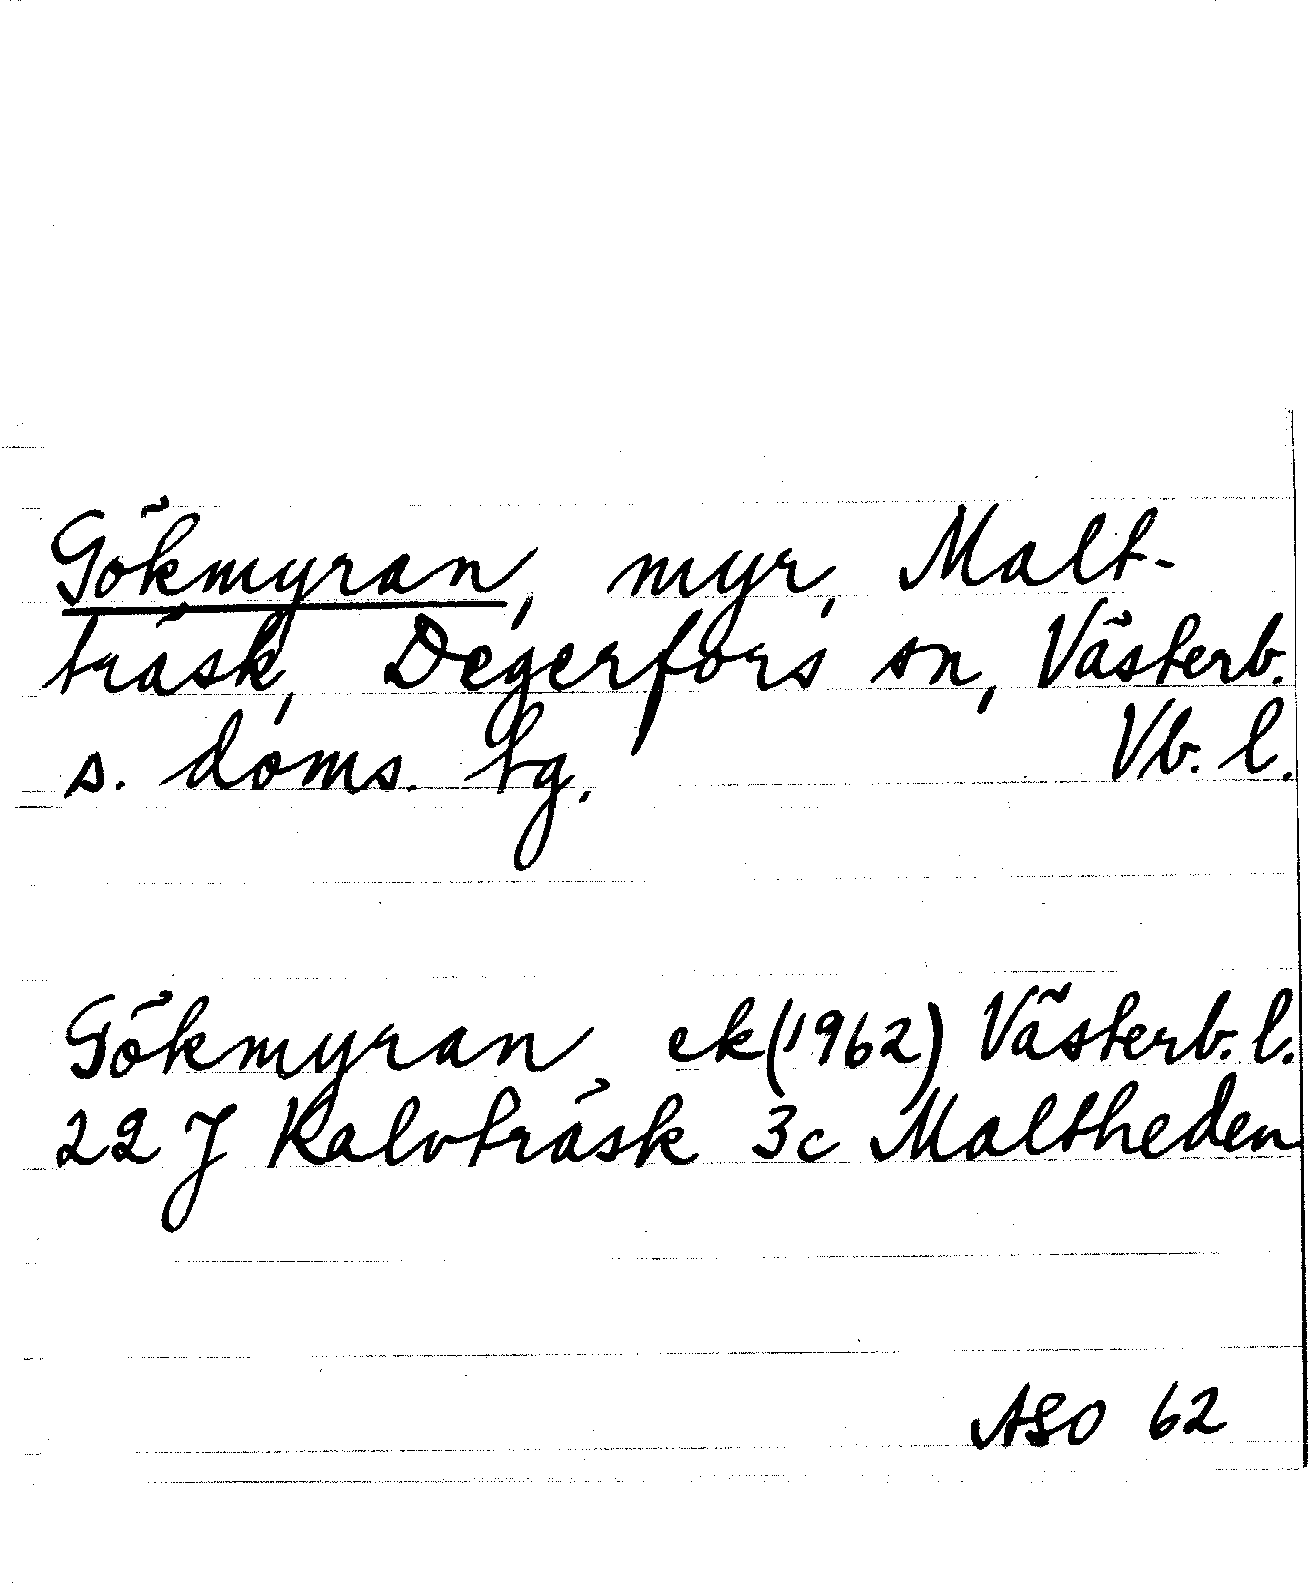 Gökmyran, myr, Malt-
träsk, Degerfors sn, Västerb.
s. doms. tg. Vb. l.
Gökmyran ek (1962) Västerb. l.
22 J Kalvträsk 3c Maltheden
ASO 62